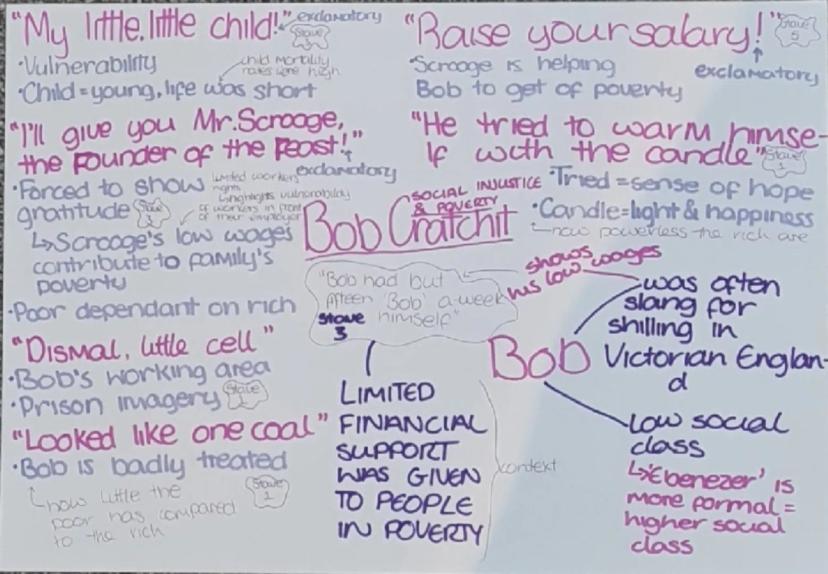 "My little, little child!"
exclamatory
Stave
3
• Vulnerability
child mortality
rates were high
• Child = young, life was short
"I'll give you Mr. Scrooge,
the Founder of the Feast!"
exclamatory
• Forced to show
gratitude
Stave
3
limited workers
rights
highlights vulnerability
of workers in front
of their employer
↳ Scrooge's low wages
contribute to family's
poverty
• Poor dependant on rich
"Dismal, little cell"
• Bob's working area
• Prison imagery
Stave
1
"Looked like one coal"
• Bob is badly treated
how little the
poor has compared
to the rich
Stave
1
"Raise your salary!"
Stave
5
exclamatory
• Scrooge is helping
Bob to get of poverty
"He tried to warm himse-
lf with the candle"
Stave
1
• Tried = sense of hope
• Candle = light & happiness
how powerless the rich are
SOCIAL INJUSTICE
& POVERTY
Bob Cratchit
"Bob had but
fifteen 'Bob' a-week
himself"
Stave
3
shows
his low wages
LIMITED
FINANCIAL
SUPPORT
WAS GIVEN
TO PEOPLE
IN POVERTY
context
Bob
was often
slang for
shilling in
Victorian Englan-
d
Low social
class
↳ 'Ebenezer' is
more formal =
higher social
class